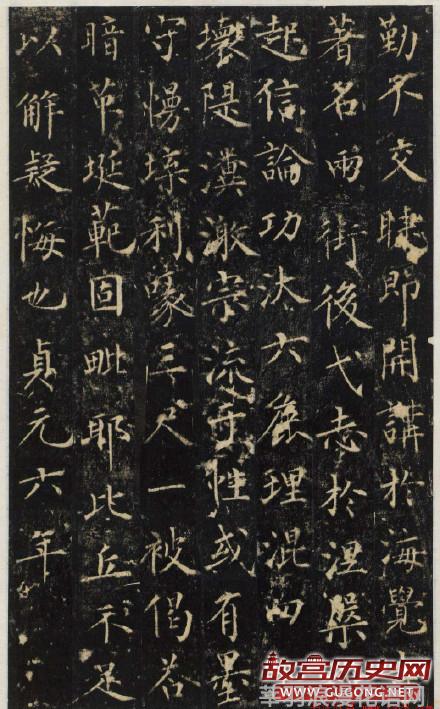 勤不交睫即開講於海覺
著名兩街後弋志於涅槃
起信論功汰六塵理混四
壞隄潰潎崇流于性或有墨
守慢埲利喙三尺一被偈答
暗苶埏範固毗耶比丘不足
以解疑悔也貞元六年
故宫历史网
WWW.GUGONG.NET